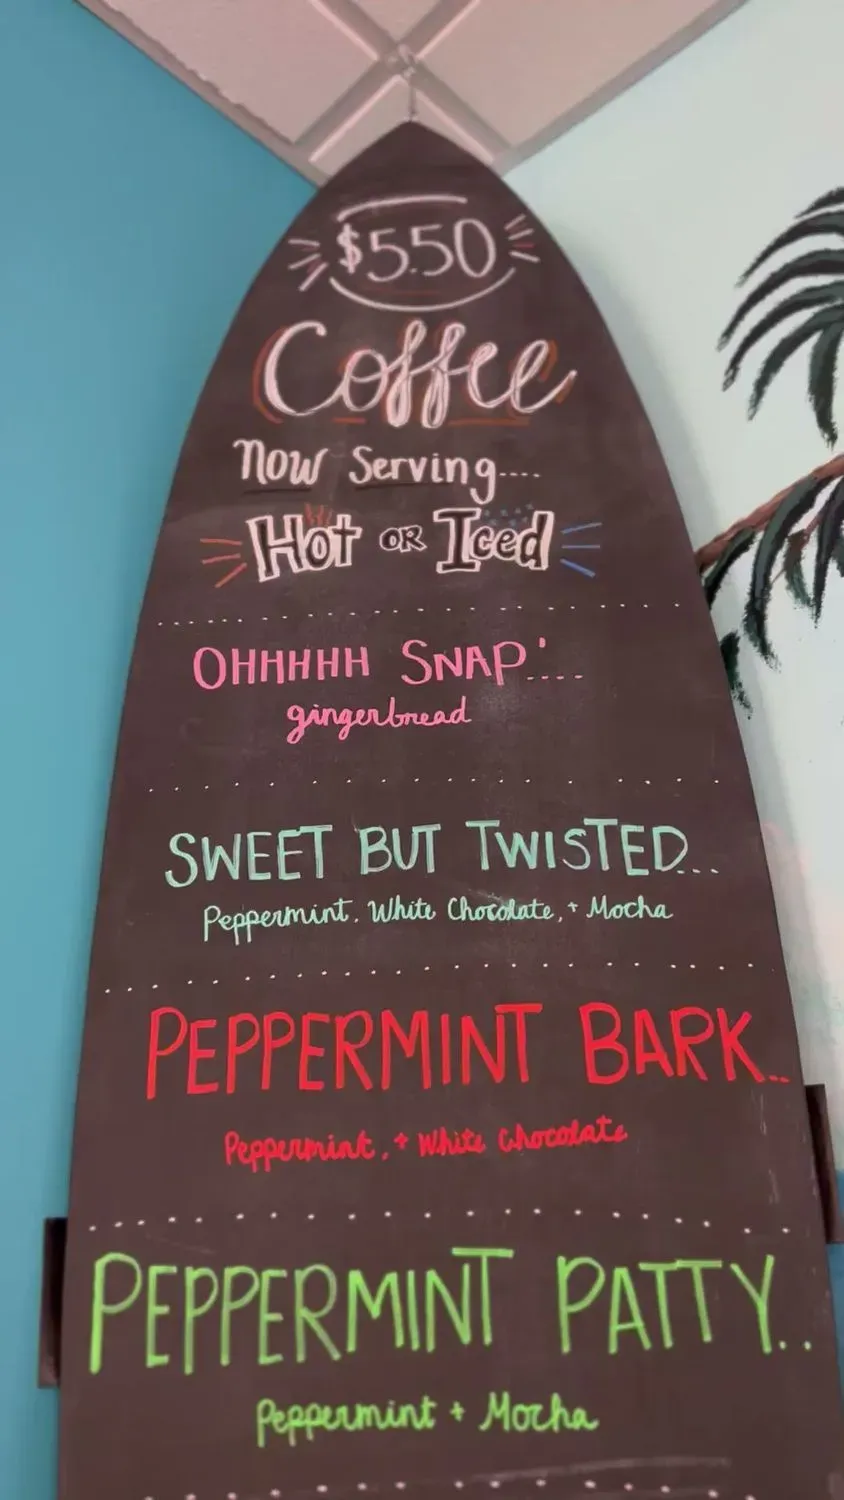 $5.50
Coffee
Now Serving....
Hot OR Iced
OHHHHH SNAP'....
gingerbread
SWEET BUT TWISTED...
Peppermint, White Chocolate, + Mocha
PEPPERMINT BARK...
Peppermint, + White Chocolate
PEPPERMINT PATTY..
Peppermint + Mocha